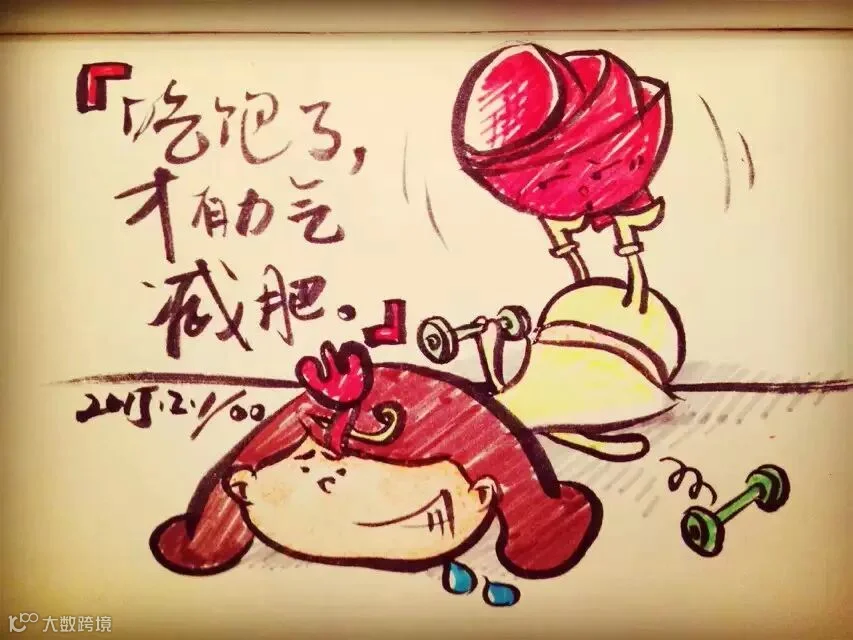 『吃饱了，
才有力气
减肥。』
2015.2.1/100
大数跨境